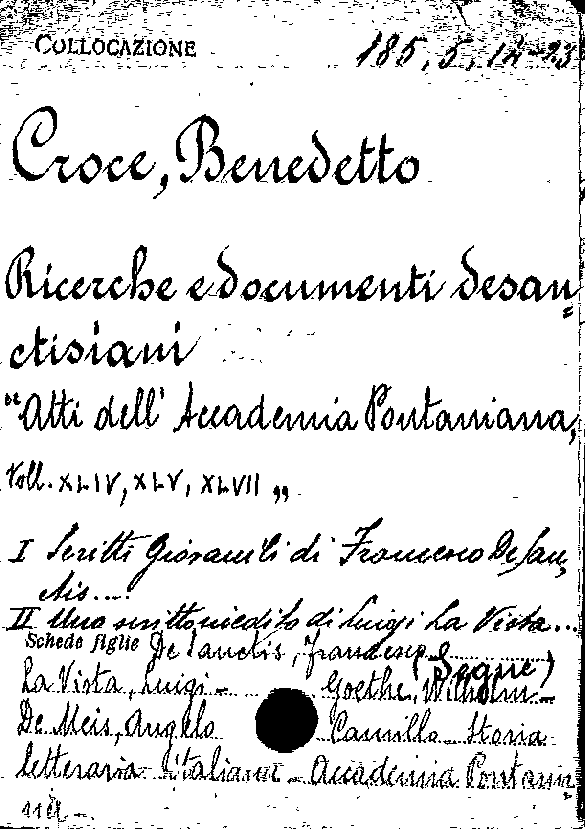 COLLOCAZIONE 185, 5, 12-23
Croce, Benedetto
Ricerche e documenti desan=
ctisiani
"Atti dell' Accademia Pontaniana,
Voll. XLIV, XLV, XLVII "
I Scritti Giovanili di Francesco De San,
ctis....
II Uno scritto inedito di Luigi La Vista...
Schede figlie De Sanctis, Francesco (Segue)
La Vista, Luigi - Goethe, Wilhelm -
De Meis, Angelo Camillo - Storia
letteraria italiana - Accademia Pontania
na -